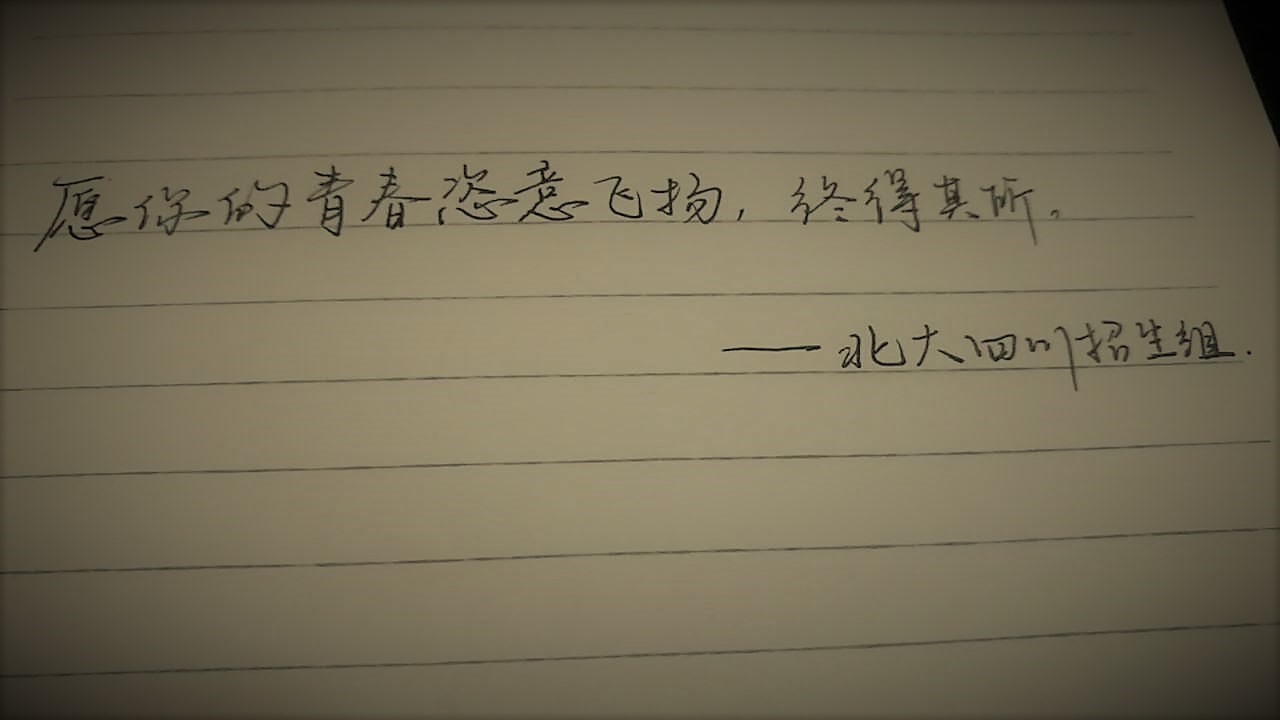 愿你的青春恣意飞扬，终得其所。
——北大四川招生组.